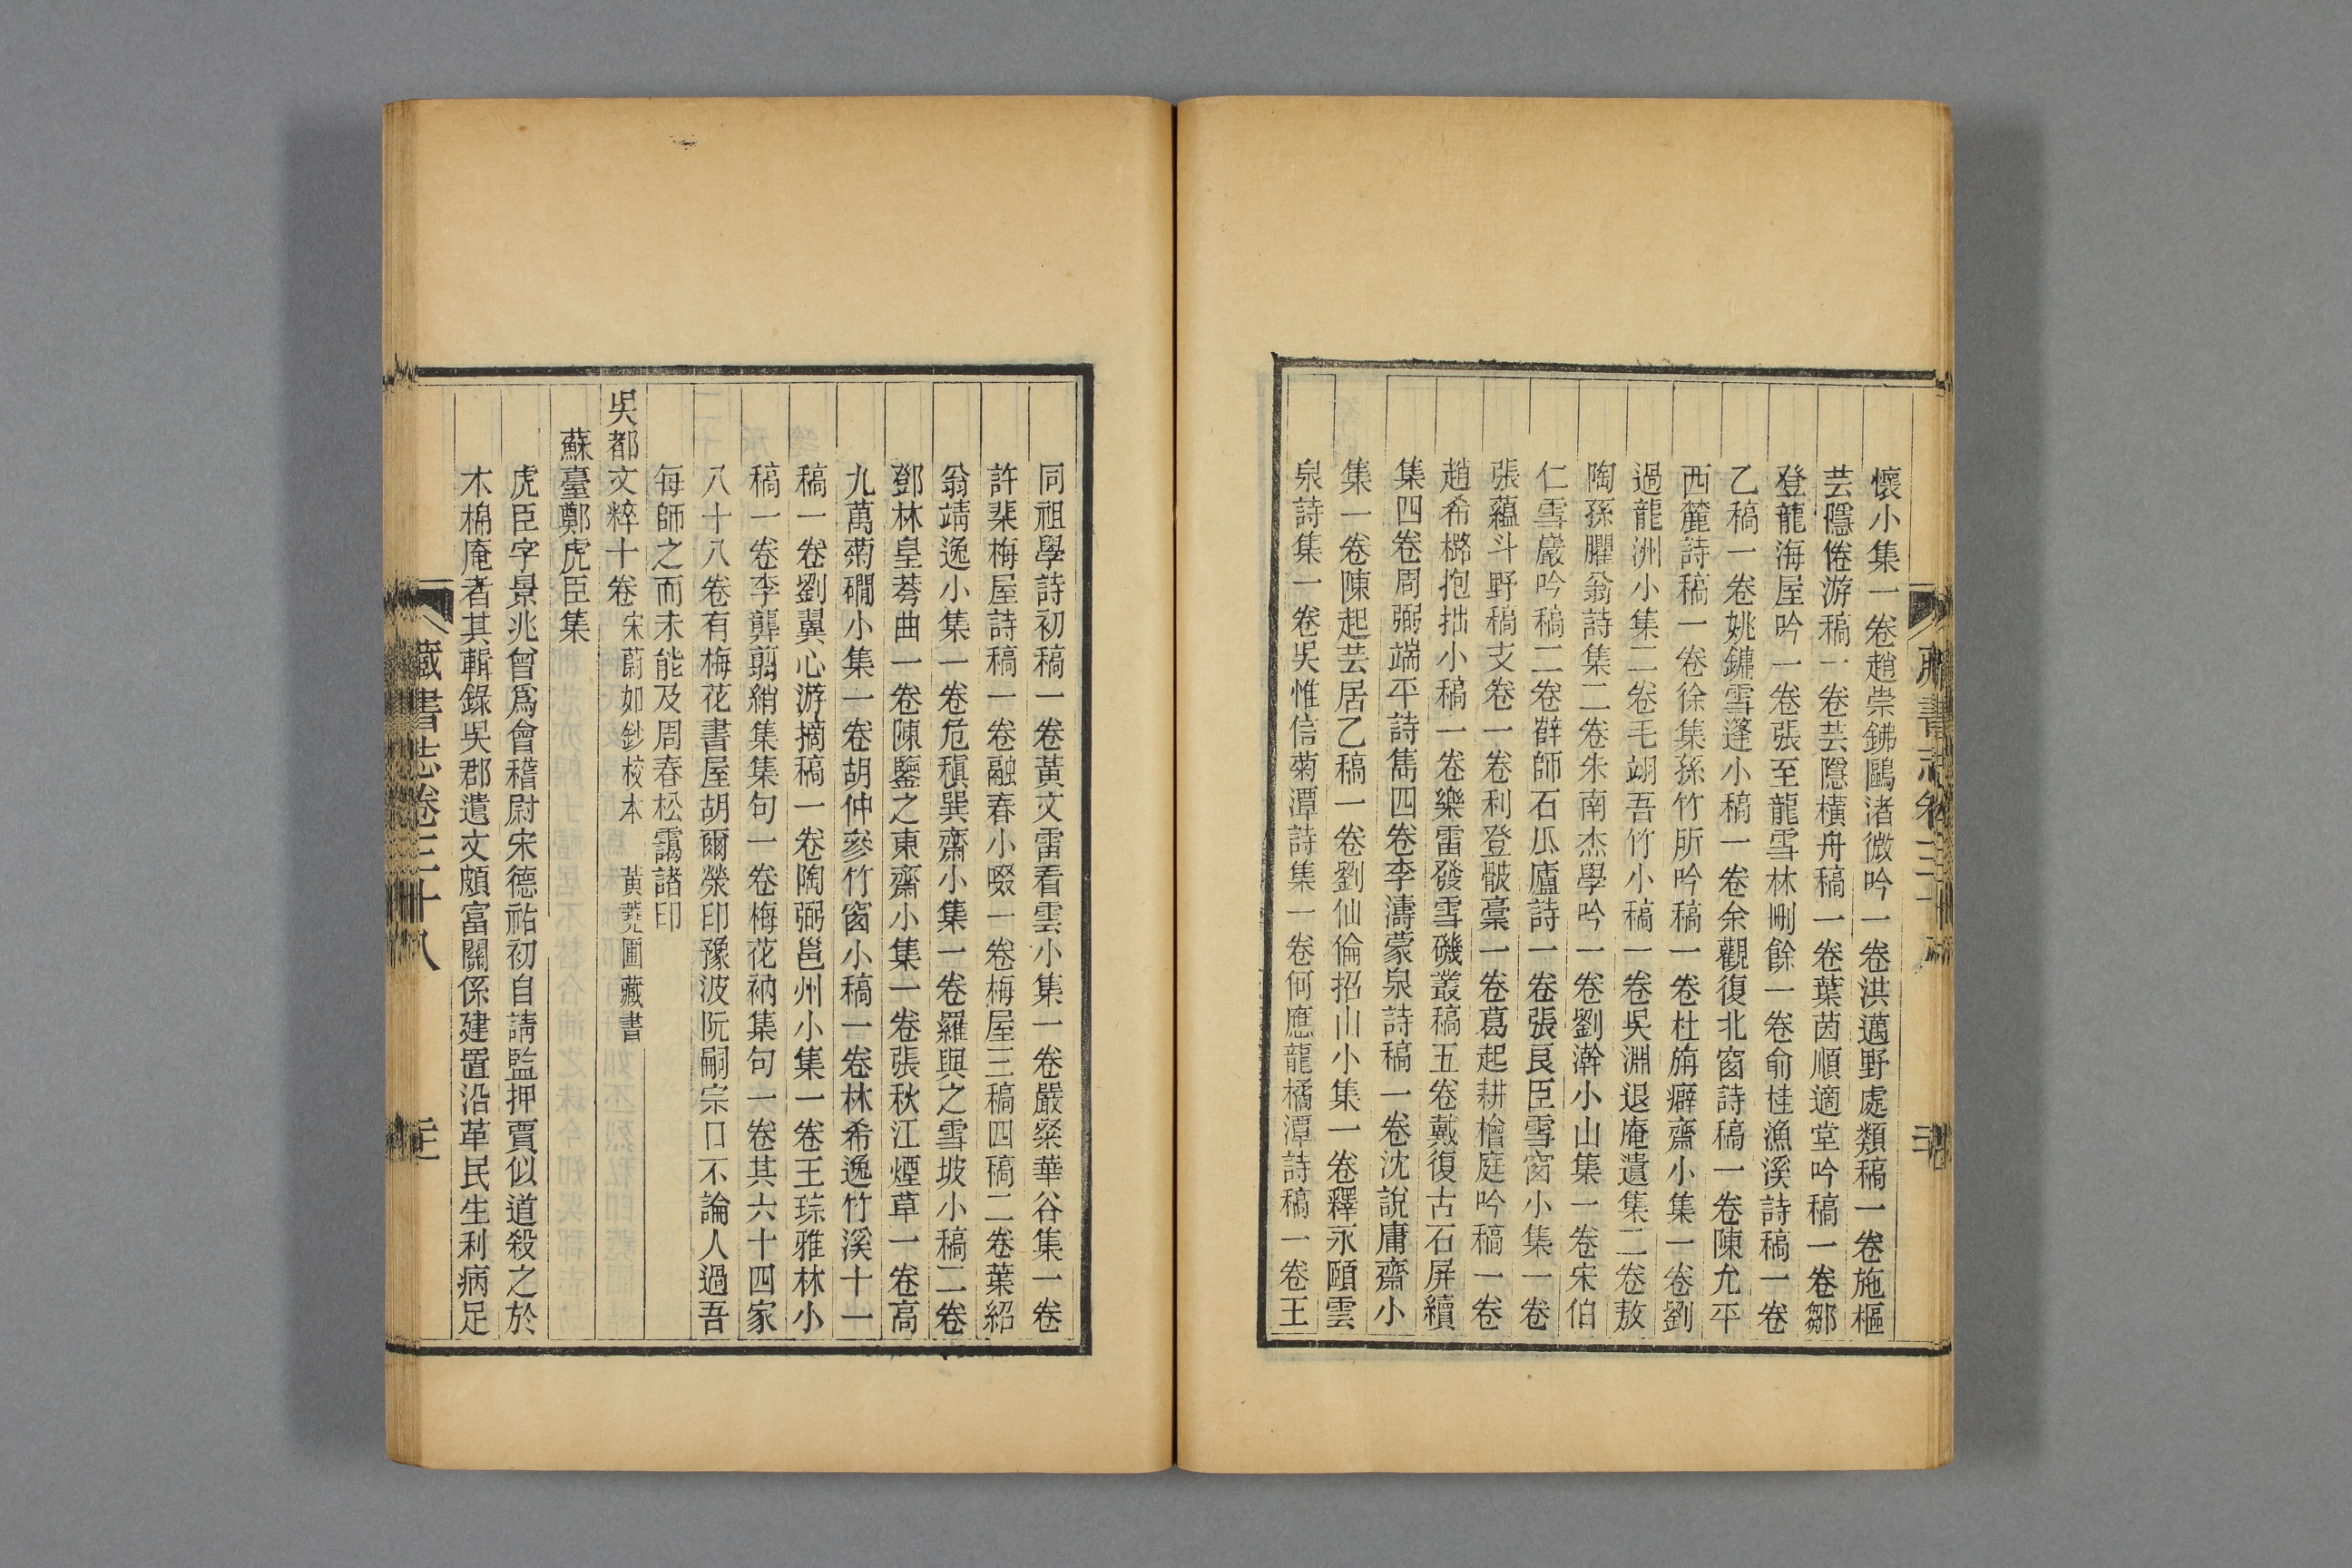 懷小集一卷趙崇鉘鷗渚微吟一卷洪邁野處類稿一卷施樞
芸隱倦游稿一卷芸隱橫舟稿一卷葉茵順適堂吟稿一卷鄒
登龍海屋吟一卷張至龍雪林刪餘一卷俞桂漁溪詩稿一卷
乙稿一卷姚鏞雪蓬小稿一卷余觀復北窗詩稿一卷陳允平
西麓詩稿一卷徐集孫竹所吟稿一卷杜旃癖齋小集一卷劉
過龍洲小集二卷毛翊吾竹小稿一卷吳淵退庵遺集二卷敖
陶孫臞翁詩集二卷朱南杰學吟一卷劉澣小山集一卷宋伯
仁雪巖吟稿二卷薛師石瓜廬詩一卷張良臣雪窗小集一卷
張蘊斗野稿支卷一卷利登骳稾一卷葛起耕檜庭吟稿一卷
趙希㯝抱拙小稿一卷樂雷發雪磯叢稿五卷戴復古石屏續
集四卷周弼端平詩雋四卷李濤蒙泉詩稿一卷沈說庸齋小
集一卷陳起芸居乙稿一卷劉仙倫招山小集一卷釋永頤雲
泉詩集一卷吳惟信菊潭詩集一卷何應龍橘潭詩稿一卷王
同祖學詩初稿一卷黃文雷看雲小集一卷嚴粲華谷集一卷
許棐梅屋詩稿一卷融春小啜一卷梅屋三稿四稿二卷葉紹
翁靖逸小集一卷危稹巽齋小集一卷羅與之雪坡小稿二卷
鄧林皇荂曲一卷陳鑒之東齋小集一卷張秋江煙草一卷高
九萬菊磵小集一卷胡仲參竹窗小稿一卷林希逸竹溪十一
稿一卷劉翼心游摘稿一卷陶弼邕州小集一卷王琮雅林小
稿一卷李龏翦綃集集句一卷梅花衲集句一卷其六十四家
八十八卷有梅花書屋胡爾榮印豫波阮嗣宗口不論人過吾
每師之而未能及周春松靄諸印
吳都文粹十卷 宋蔚如鈔校本 黃蕘圃藏書
蘇臺鄭虎臣集
虎臣字景兆曾爲會稽尉宋德祐初自請監押賈似道殺之於
木棉庵者其輯錄吳郡遺文頗富關係建置沿革民生利病足
藏書志卷三十八